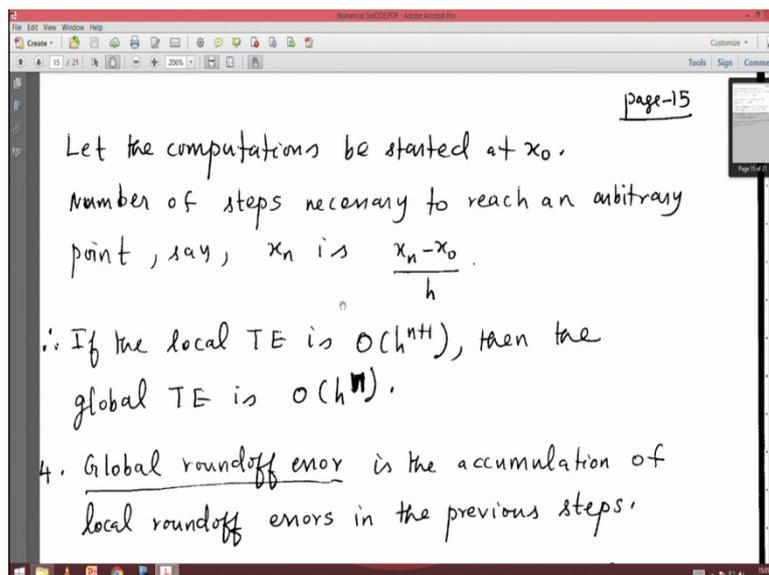 Numerical SolODE.PDF - Adobe Acrobat Pro
File Edit View Window Help
Create
Customize
15 / 21
206%
Tools Sign Comme
page-15
Let the computations be started at x₀.
Number of steps necessary to reach an arbitrary
point, say, xₙ is (xₙ - x₀)/h.
∴ If the local TE is O(hⁿ⁺¹), then the
global TE is O(hⁿ).
4. Global roundoff error is the accumulation of
local roundoff errors in the previous steps.
Page 15 of 21